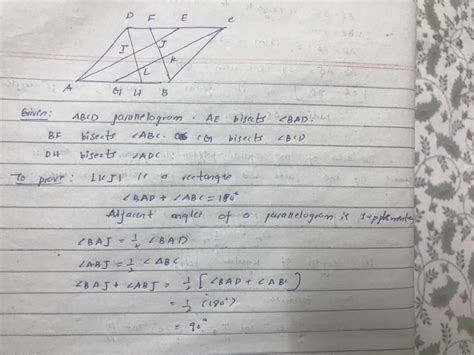 D F E C
I J
K
L
A G H B
Given: ABCD parallelogram. AE bisects ∠BAD.
BF bisects ∠ABC. CG bisects ∠BCD
DH bisects ∠ADC.
To prove: LKJI is a rectangle
∠BAD + ∠ABC = 180°
Adjacent angles of a parallelogram is supplementary
∠BAJ = 1/2 ∠BAD
∠ABJ = 1/2 ∠ABC
∠BAJ + ∠ABJ = 1/2 [∠BAD + ∠ABC)
= 1/2 (180°)
= 90°